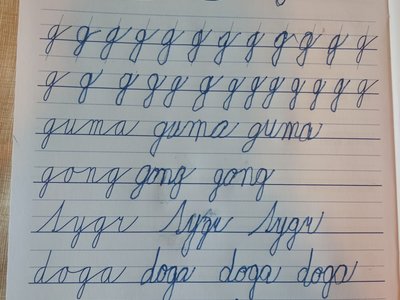 g g g g g g g g g g g g
g g g g g g g g g g g g g
guma guma guma
gong gong gong
tygr tygr tygr
doga doga doga doga